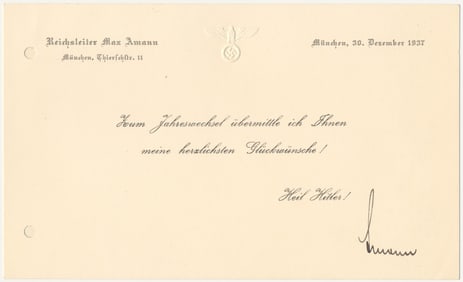 Reichsleiter Max Amann
München, Thierschstr. 11
München, 30. Dezember 1937
Zum Jahreswechsel übermittle ich Ihnen
meine herzlichsten Glückwünsche!
Heil Hitler!
Amann